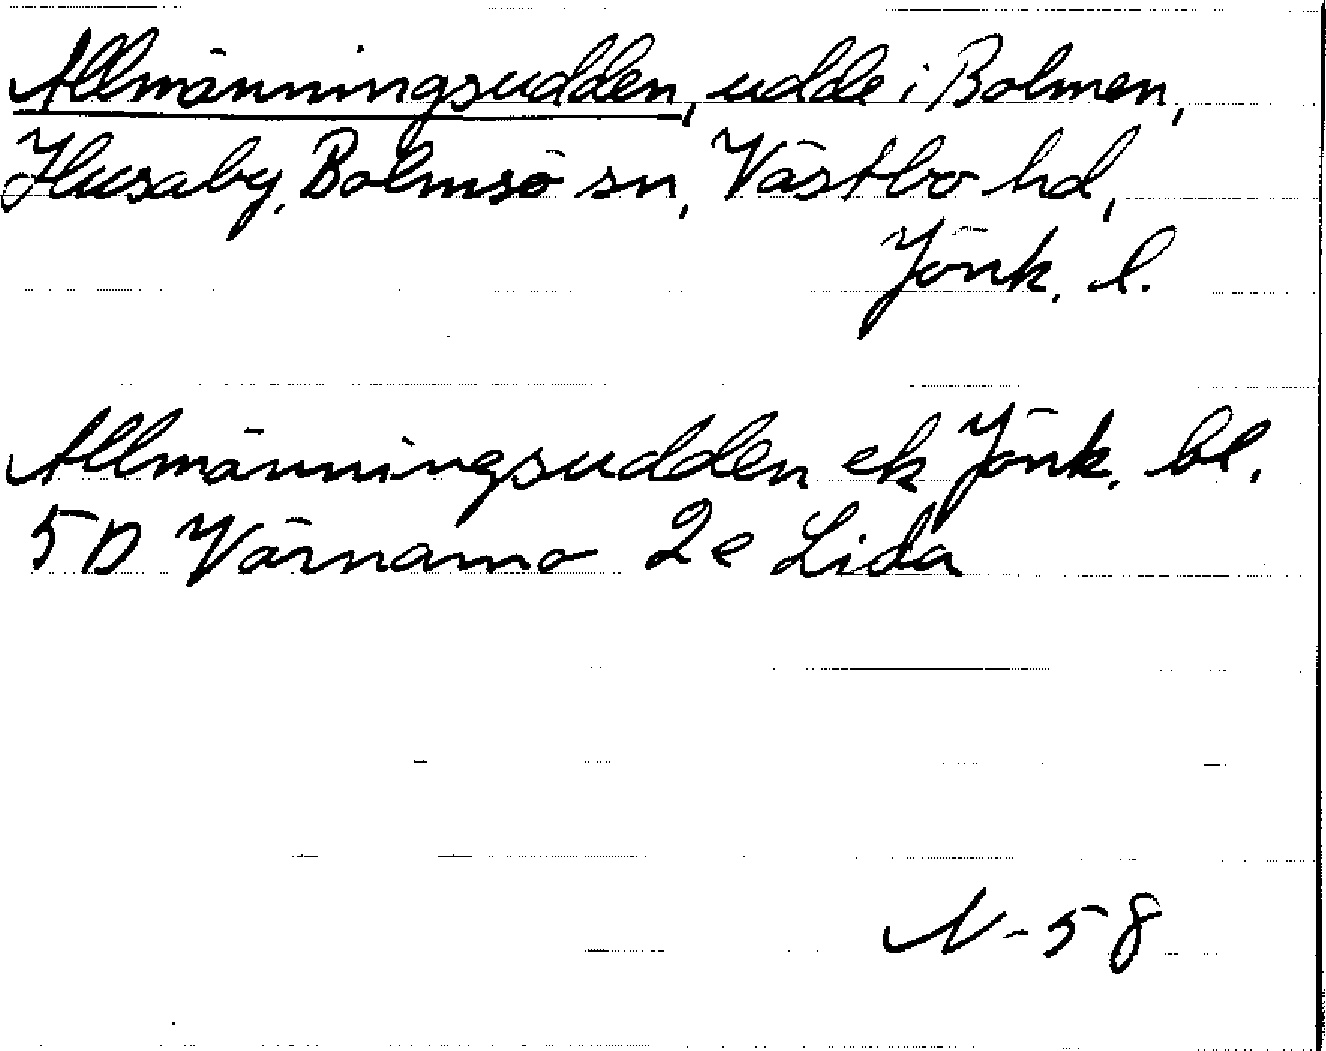 Allmänningsudden, udde i Bolmen,
Husaby, Bolmsö sn, Västbo hd,
Jönk. l.
Allmänningsudden ek Jönk. bl.
5D Värnamo 2e Lida
N-58